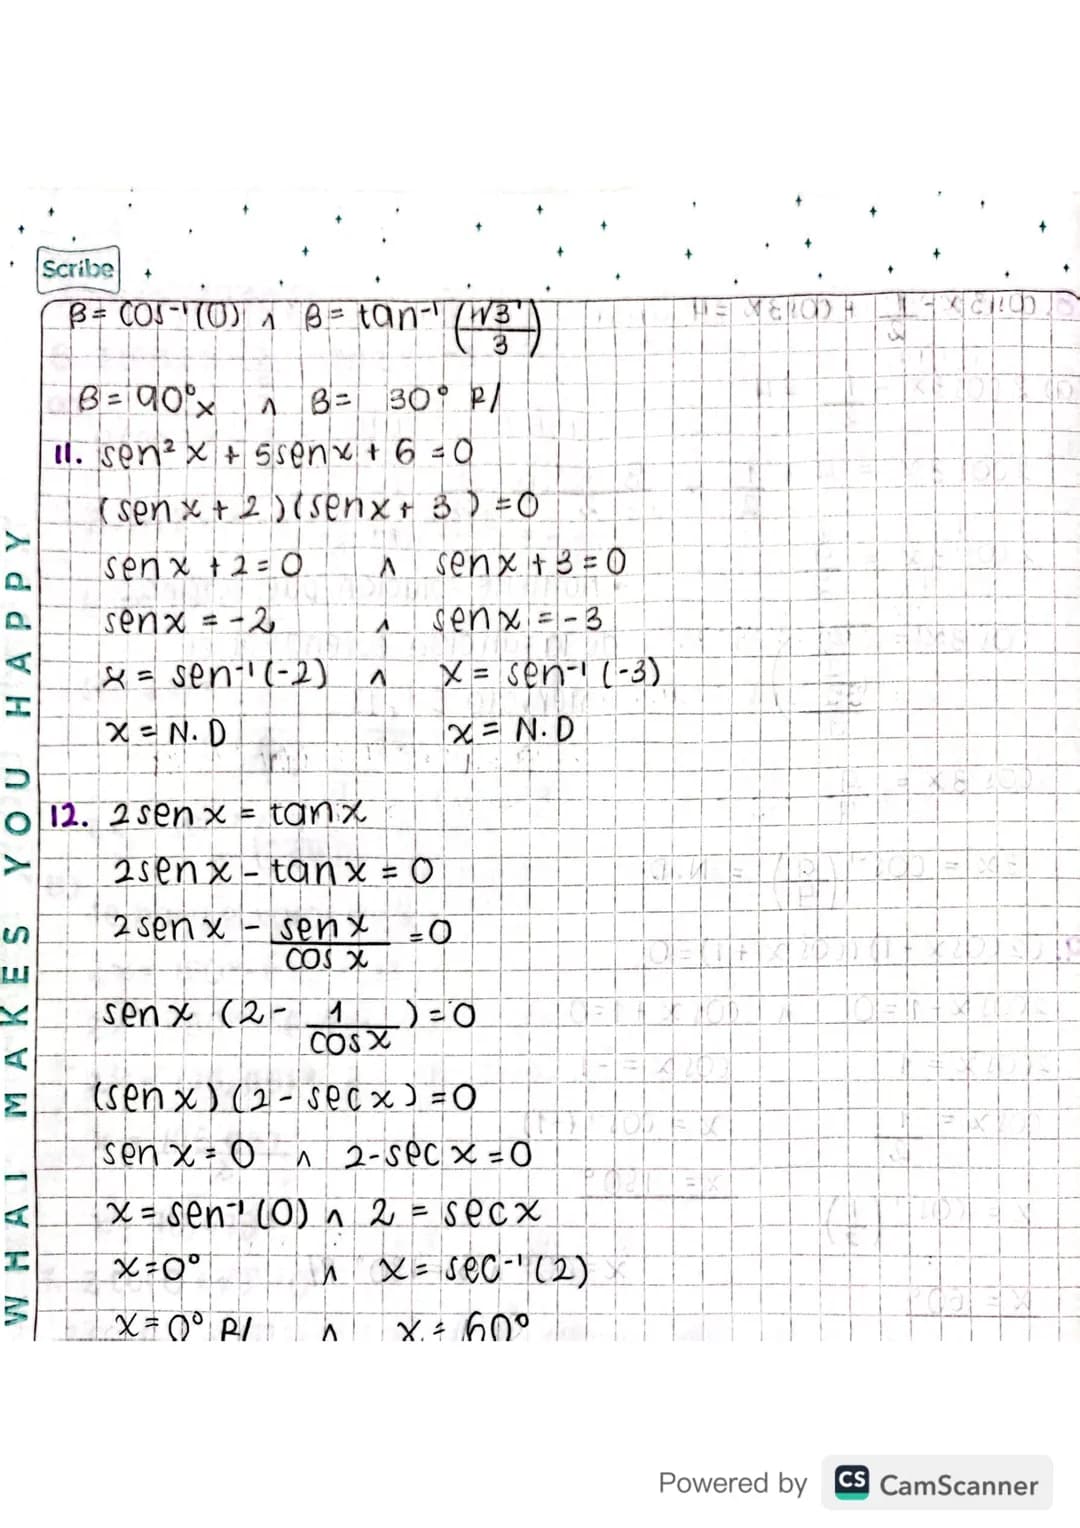 Scribe
β = cos⁻¹(0) ∧ β = tan⁻¹(√3/3)
β = 90° x ∧ β = 30° R/
11. sen² x + 5senx + 6 = 0
(senx + 2)(senx + 3) = 0
senx + 2 = 0 ∧ senx + 3 = 0
senx = -2 ∧ senx = -3
x = sen⁻¹(-2) ∧ x = sen⁻¹(-3)
x = N.D x = N.D
12. 2senx = tanx
2senx - tanx = 0
2senx - senx/cos x = 0
senx (2 - 1/cosx) = 0
(senx)(2 - secx) = 0
senx = 0 ∧ 2 - secx = 0
x = sen⁻¹(0) ∧ 2 = secx
x = 0° ∧ x = sec⁻¹(2)
x = 0° R/ ∧ x = 60°
WHAT MAKES YOU HAPPY
Powered by CS CamScanner